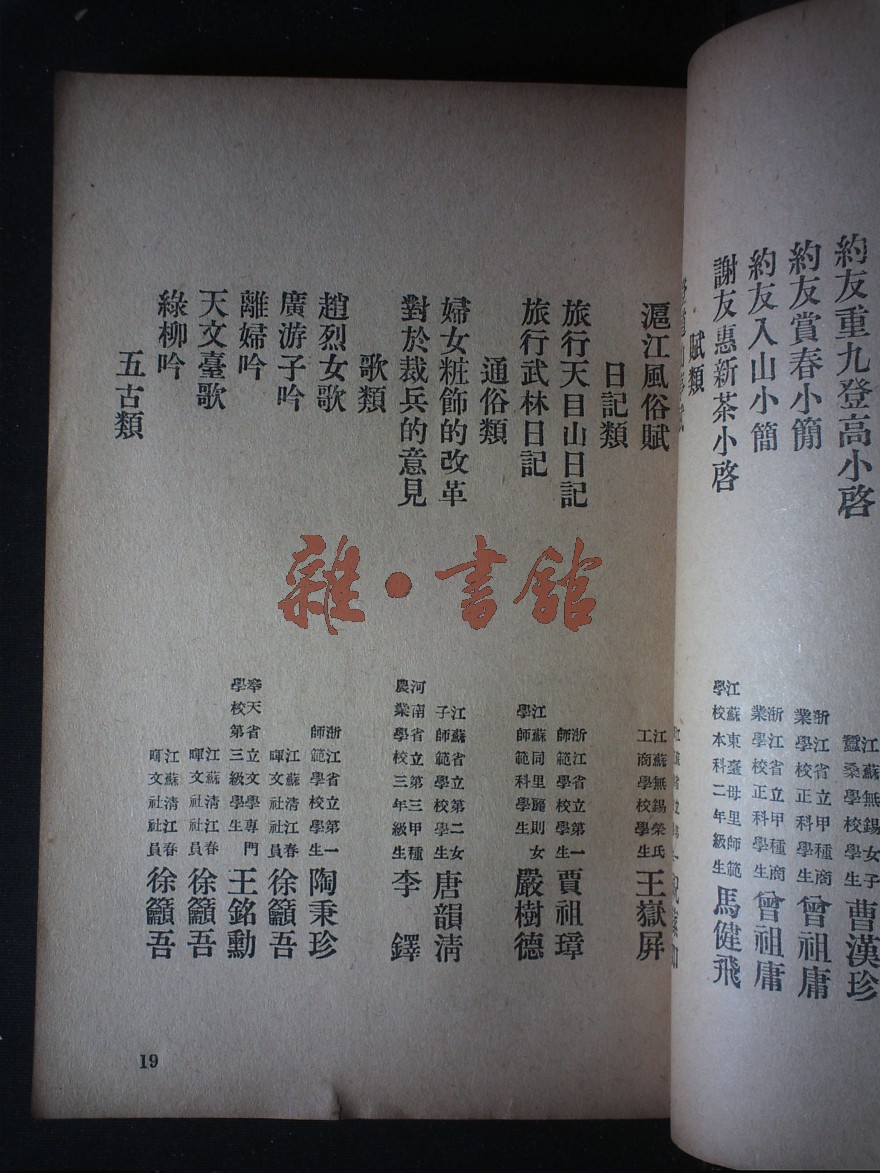 約友重九登高小啓
江蘇無錫女子蠶桑學校學生
曹漢珍
約友賞春小簡
浙江省立甲種商業學校正科學生
曾祖庸
約友入山小簡
浙江省立甲種商業學校正科學生
曾祖庸
謝友惠新茶小啓
江蘇東臺母里師範學校本科二年級生
馬健飛
賦類
滬江風俗賦
江蘇無錫榮氏工商學校學生
王嶽屏
日記類
旅行天目山日記
浙江省立第一師範學校學生
賈祖璋
旅行武林日記
江蘇同里麗則女學師範科學生
嚴樹德
通俗類
婦女粧飾的改革
江蘇省立第二女子師範學校學生
唐韻淸
對於裁兵的意見
河南省立第三甲種農業學校三年級生
李鐸
歌類
趙烈女歌
浙江省立第一師範學校學生
陶秉珍
廣游子吟
江蘇淸江春暉文社社員
徐籲吾
離婦吟
奉天省立文學專門學校第三級學生
王銘勳
天文臺歌
江蘇淸江春暉文社社員
徐籲吾
綠柳吟
江蘇淸江春暉文社社員
徐籲吾
五古類
雜·書館
19